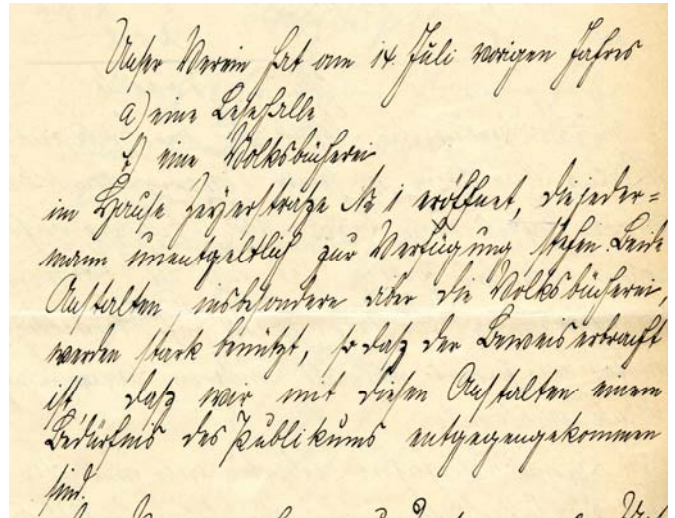 Unser Verein hat am 14. Juli vorigen Jahres
a) eine Lesehalle
b) eine Volksbücherei
im Hause Zeyerstraße № 1 eröffnet, die jeder=
mann unentgeltlich zur Verfügung stehen. Beide
Anstalten, insbesondere aber die Volksbücherei,
werden stark benützt, so daß der Beweis erbracht
ist, daß wir mit diesen Anstalten einem
Bedürfnis des Publikums entgegengekommen
sind.